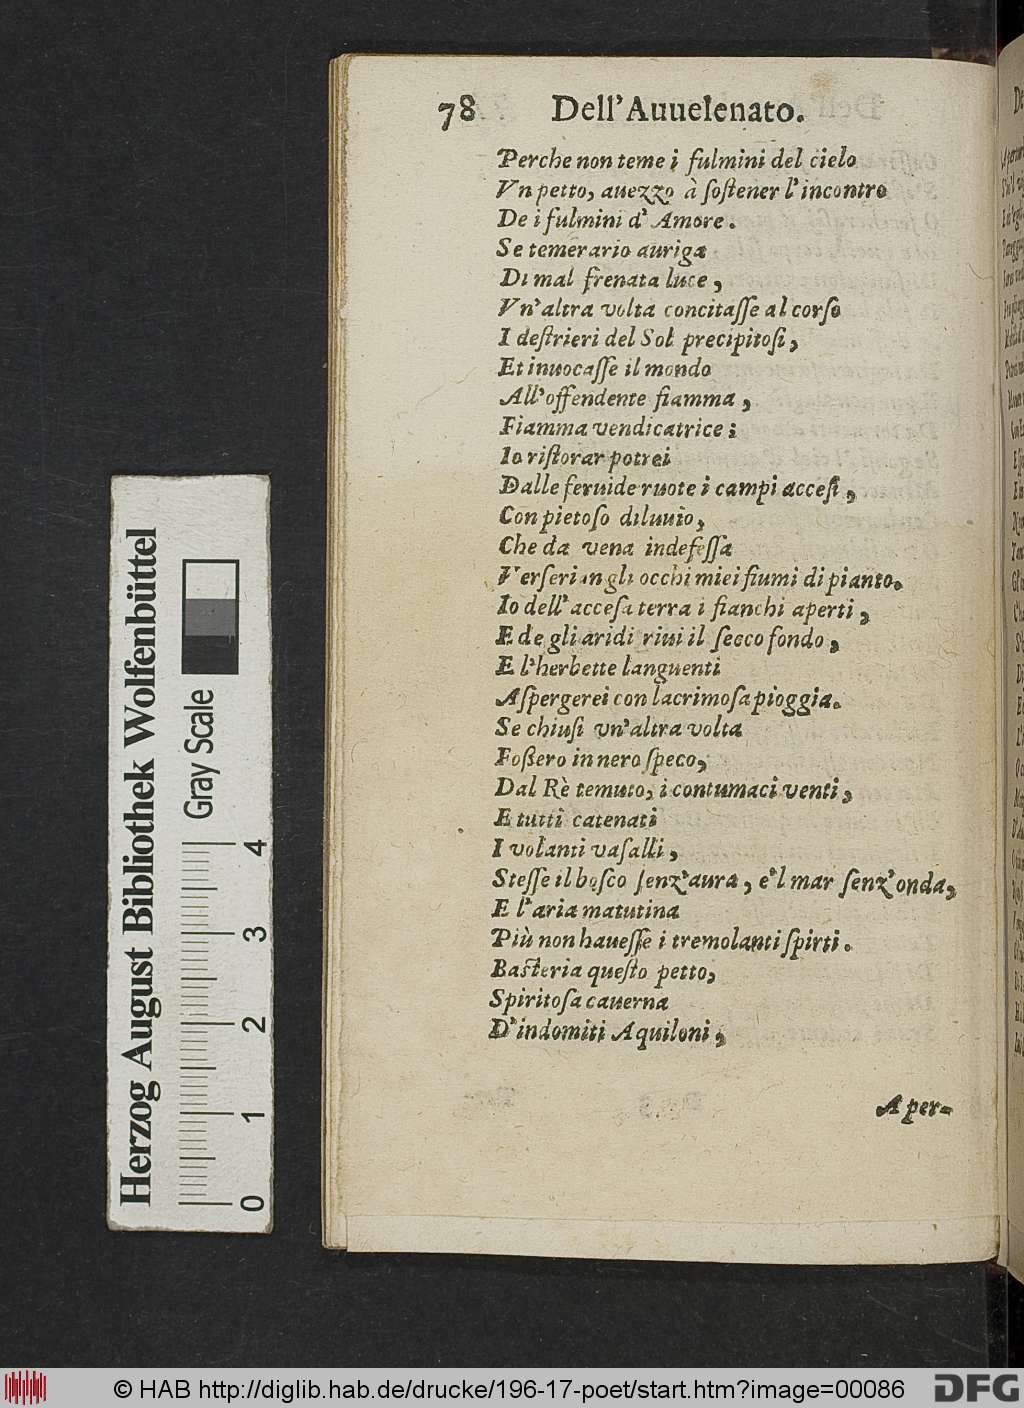 78 Dell'Auuelenato.
Perche non teme i fulmini del cielo
Vn petto, auezzo à ſoſtener l'incontro
De i fulmini d' Amore.
Se temerario auriga
Di mal frenata luce,
Vn'altra volta concitaſſe al corſo
I deſtrieri del Sol precipitoſi,
Et inuocaſſe il mondo
All'offendente fiamma,
Fiamma vendicatrice:
Io riſtorar potrei
Dalle feruide ruote i campi acceſi,
Con pietoſo diluuio,
Che da vena indefeſſa
Verſerian gli occhi miei fiumi di pianto.
Io dell'acceſa terra i fianchi aperti,
E de gli aridi riui il ſecco fondo,
E l'herbette languenti
Aſpergerei con lacrimoſa pioggia.
Se chiuſi vn'altra volta
Foßero in nero ſpeco,
Dal Rè temuto, i contumaci venti,
E tutti catenati
I volanti vaſalli,
Steſſe il boſco ſenz'aura, e'l mar ſenz'onda,
E l'aria matutina
Più non haueſſe i tremolanti ſpirti.
Baſteria queſto petto,
Spiritoſa cauerna
D'indomiti Aquiloni,
Aper-
Herzog August Bibliothek Wolfenbüttel
Gray Scale
0 1 2 3 4
© HAB http://diglib.hab.de/drucke/196-17-poet/start.htm?image=00086
DFG